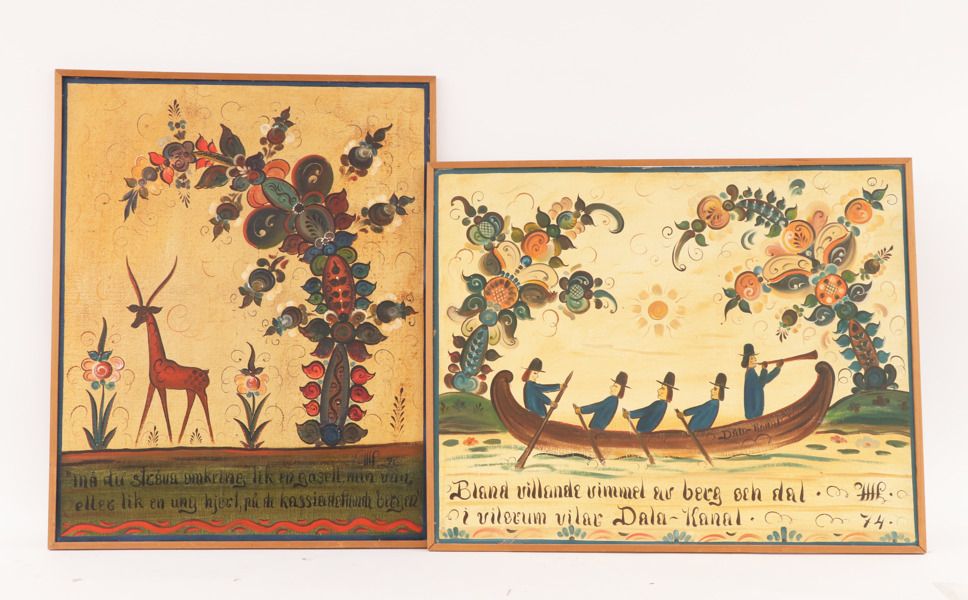 må du ströva omkring lik en gasell, min vän,
eller lik en ung hjort, på de kassiadoftande bergen
Dala-Kanal
Bland villande vimmel av berg och dal.
i vilorum vilar Dala-Kanal.
74.